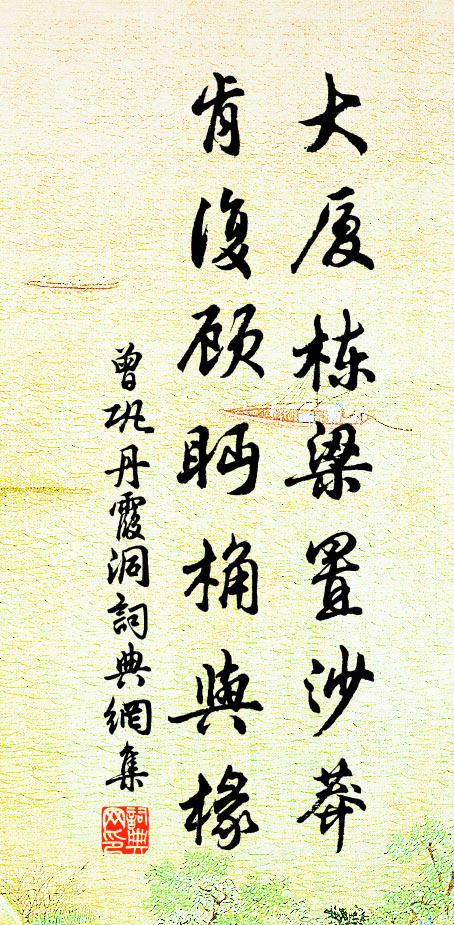 大厦栋梁置沙莽
肯復顾眄桷與椽
曾巩丹霞洞詞典網集
詞典网印